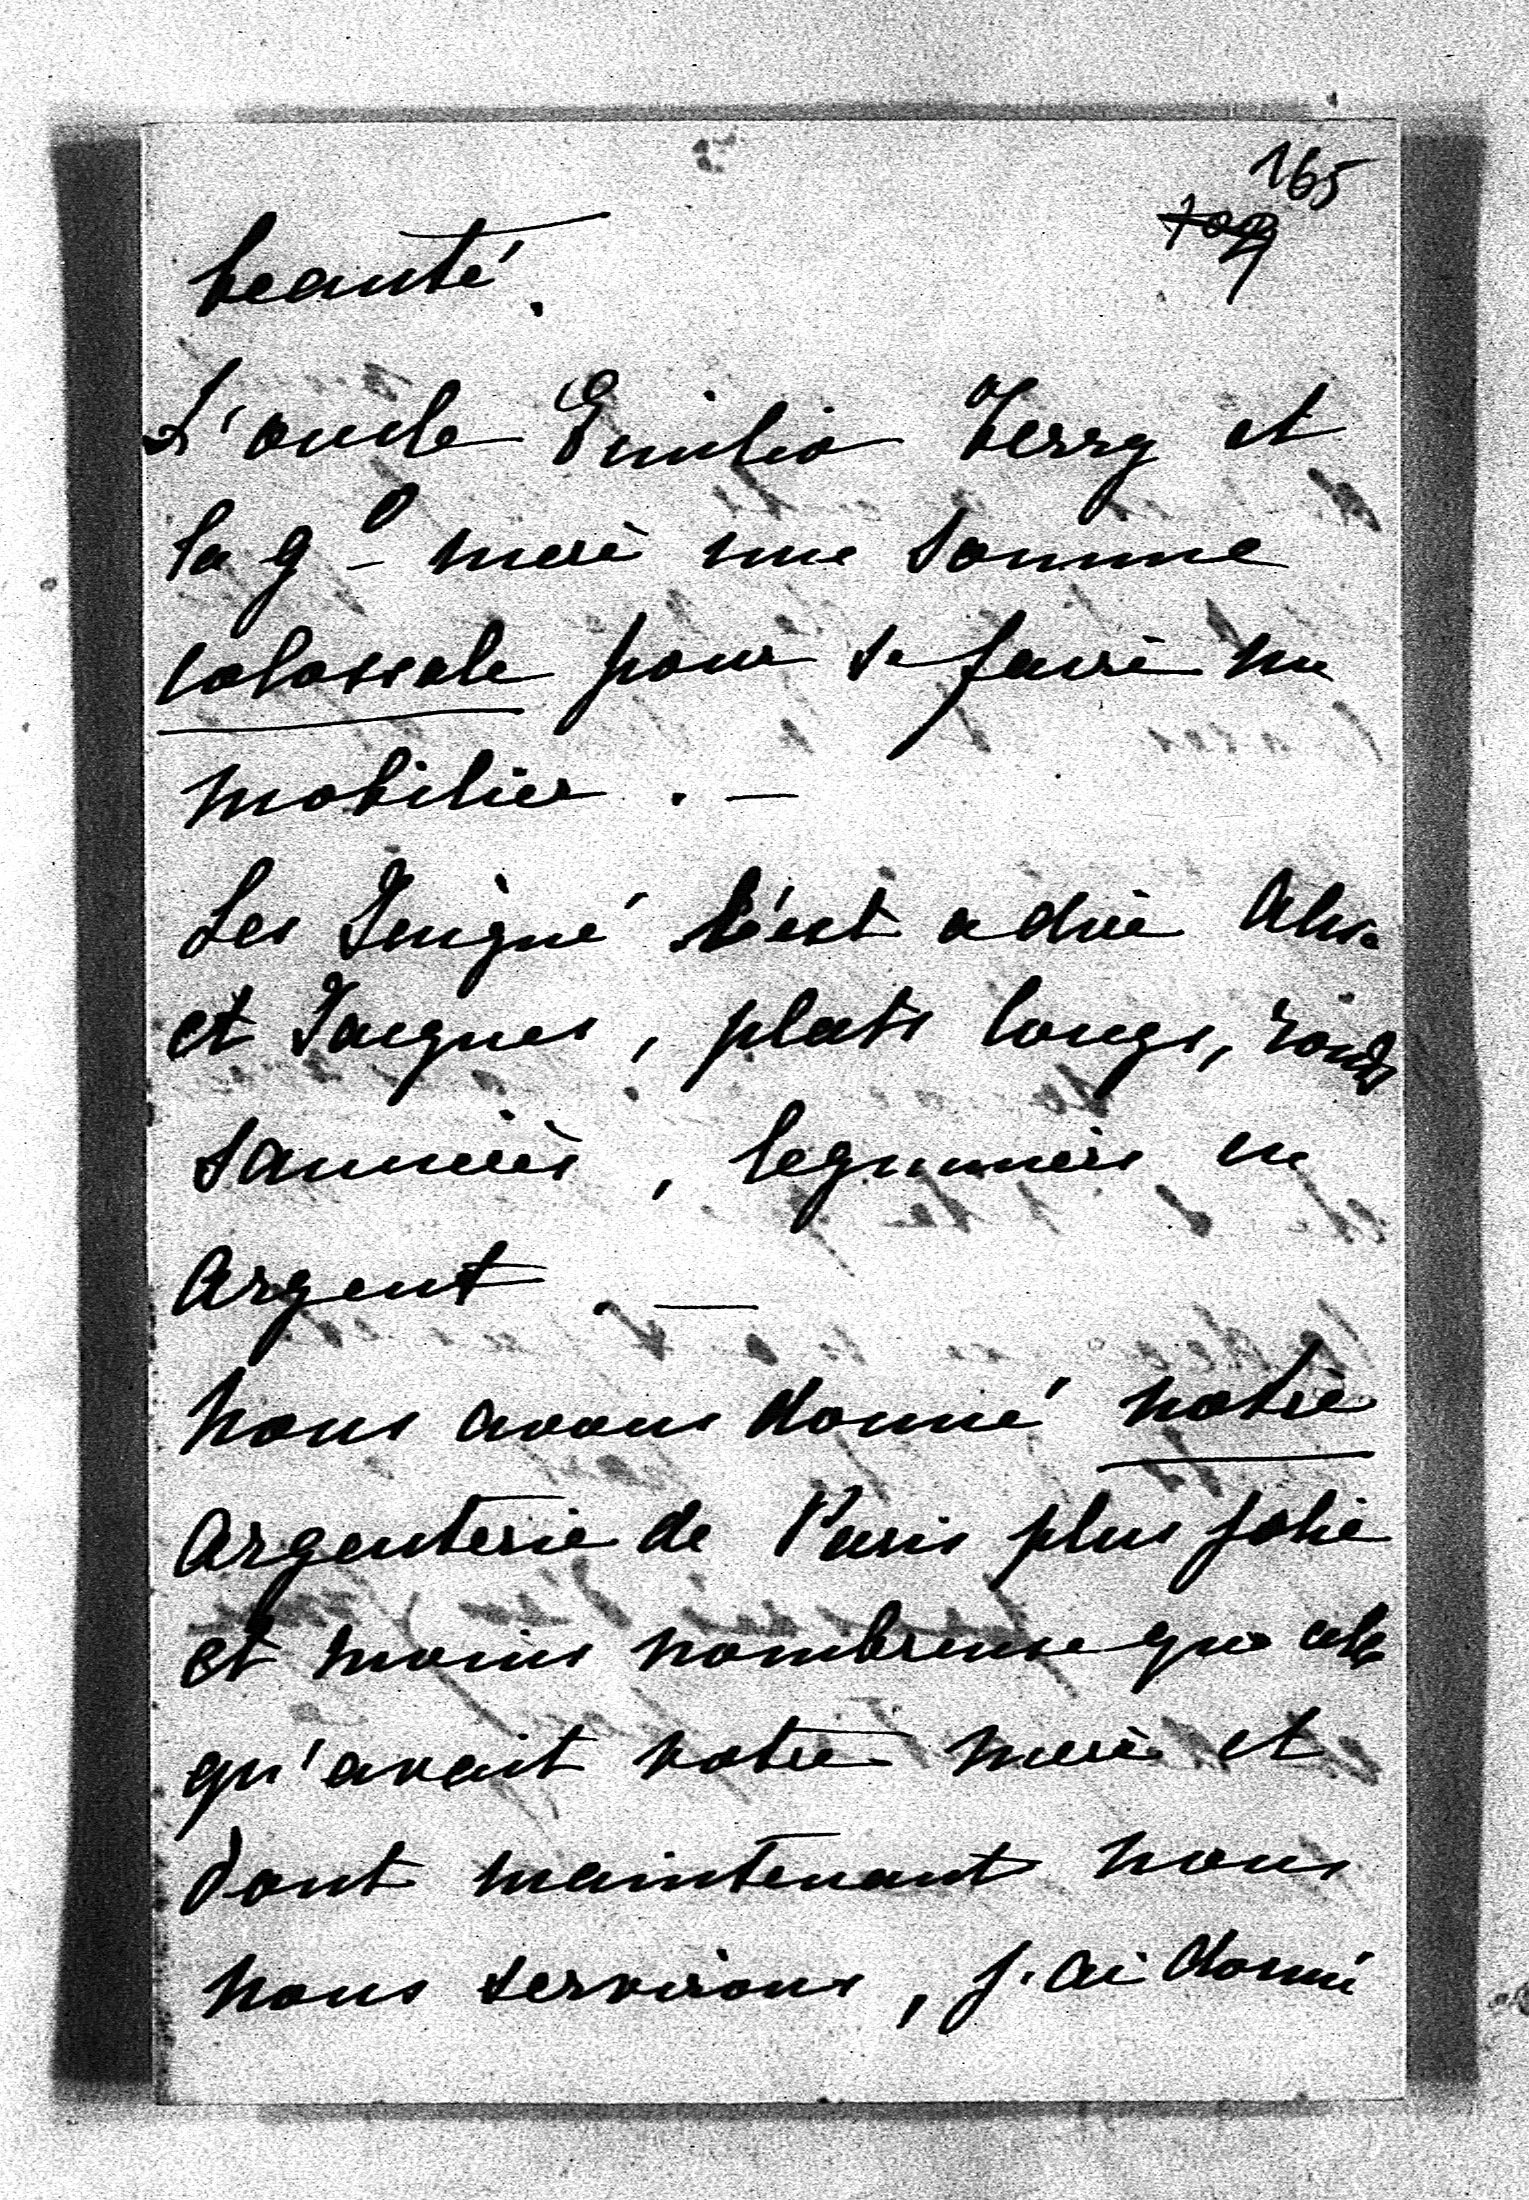 165
109
beauté.
L'oncle Emilio Terry et
la gde mère une somme
colossale pour se faire un
mobilier . —
Les Juigné c'est a dire
et Jacques, plats longs, ronds
saucières, legumiers en
argent . —
Nous avons donné notre
argenterie de Paris plus jolie
et moins nombreuse que celle
qu'avait votre mère et
dont maintenant nous
nous servirons, j'ai donné